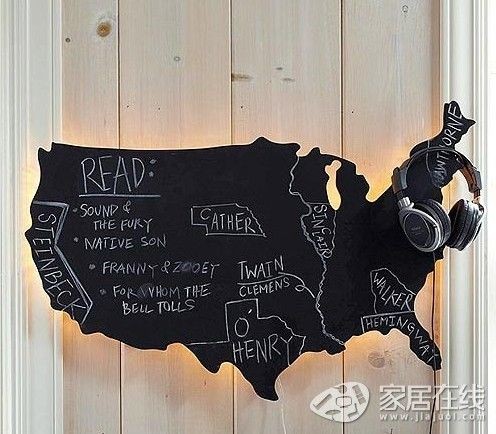 READ:
• SOUND &
THE FURY
• NATIVE SON
• FRANNY & ZOOEY
• FOR WHOM THE
BELL TOLLS
STEINBECK
CATHER
TWAIN
CLEMENS
O'
HENRY
SINCLAIR
WALKER
HEMINGWAY
HAWTHORNE
家居在线
www.jiajuol.com